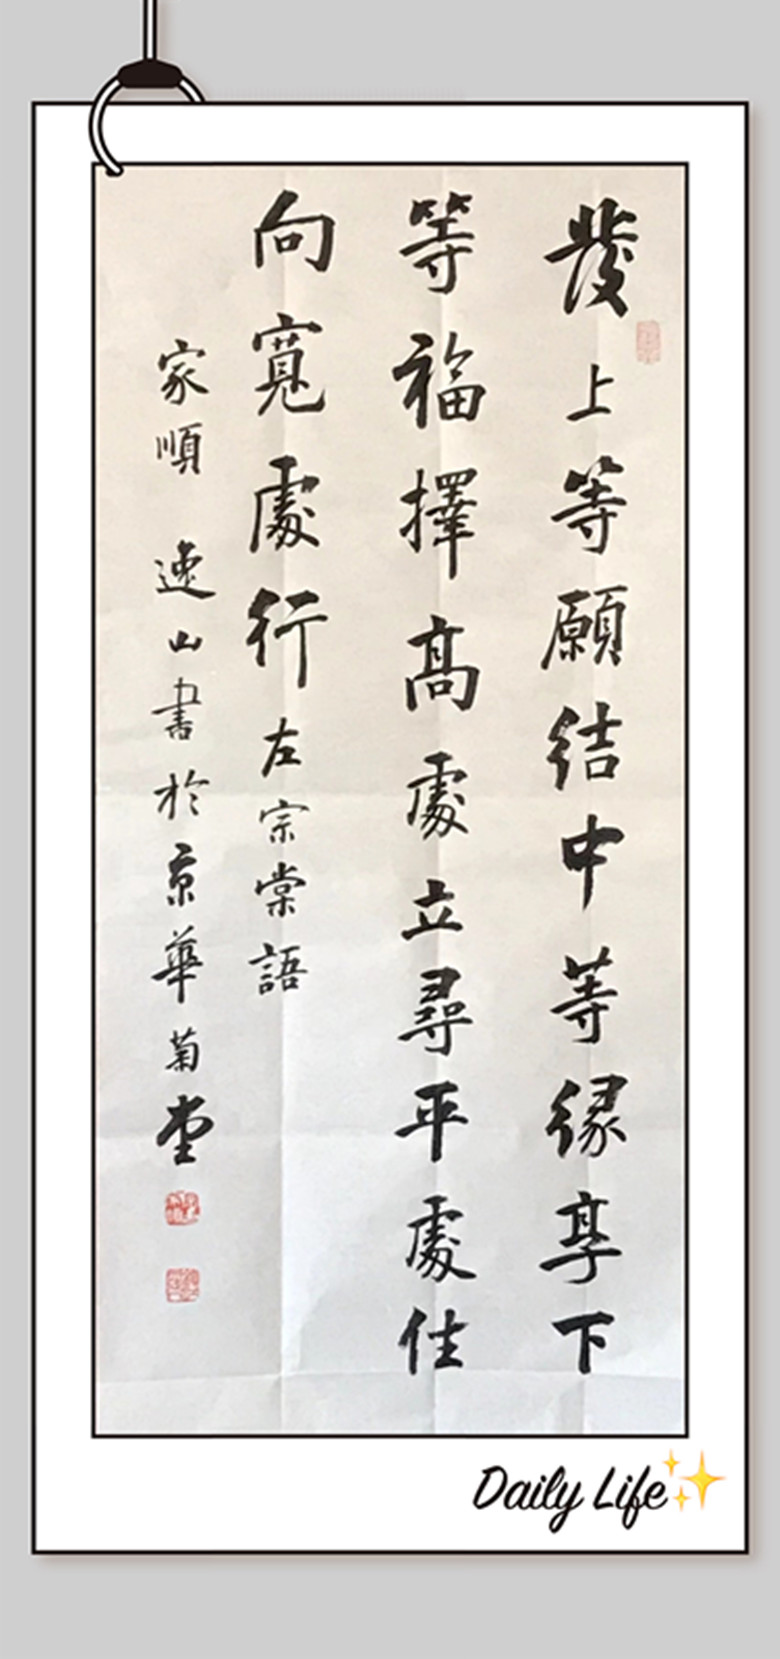 發上等願結中等緣享下
等福擇高處立尋平處住
向寬處行左宗棠語
家順 逸山書於京華菊堂
Daily Life